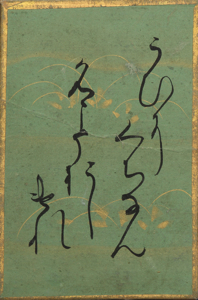 こひに
くちなん
名こそ
をし
けれ